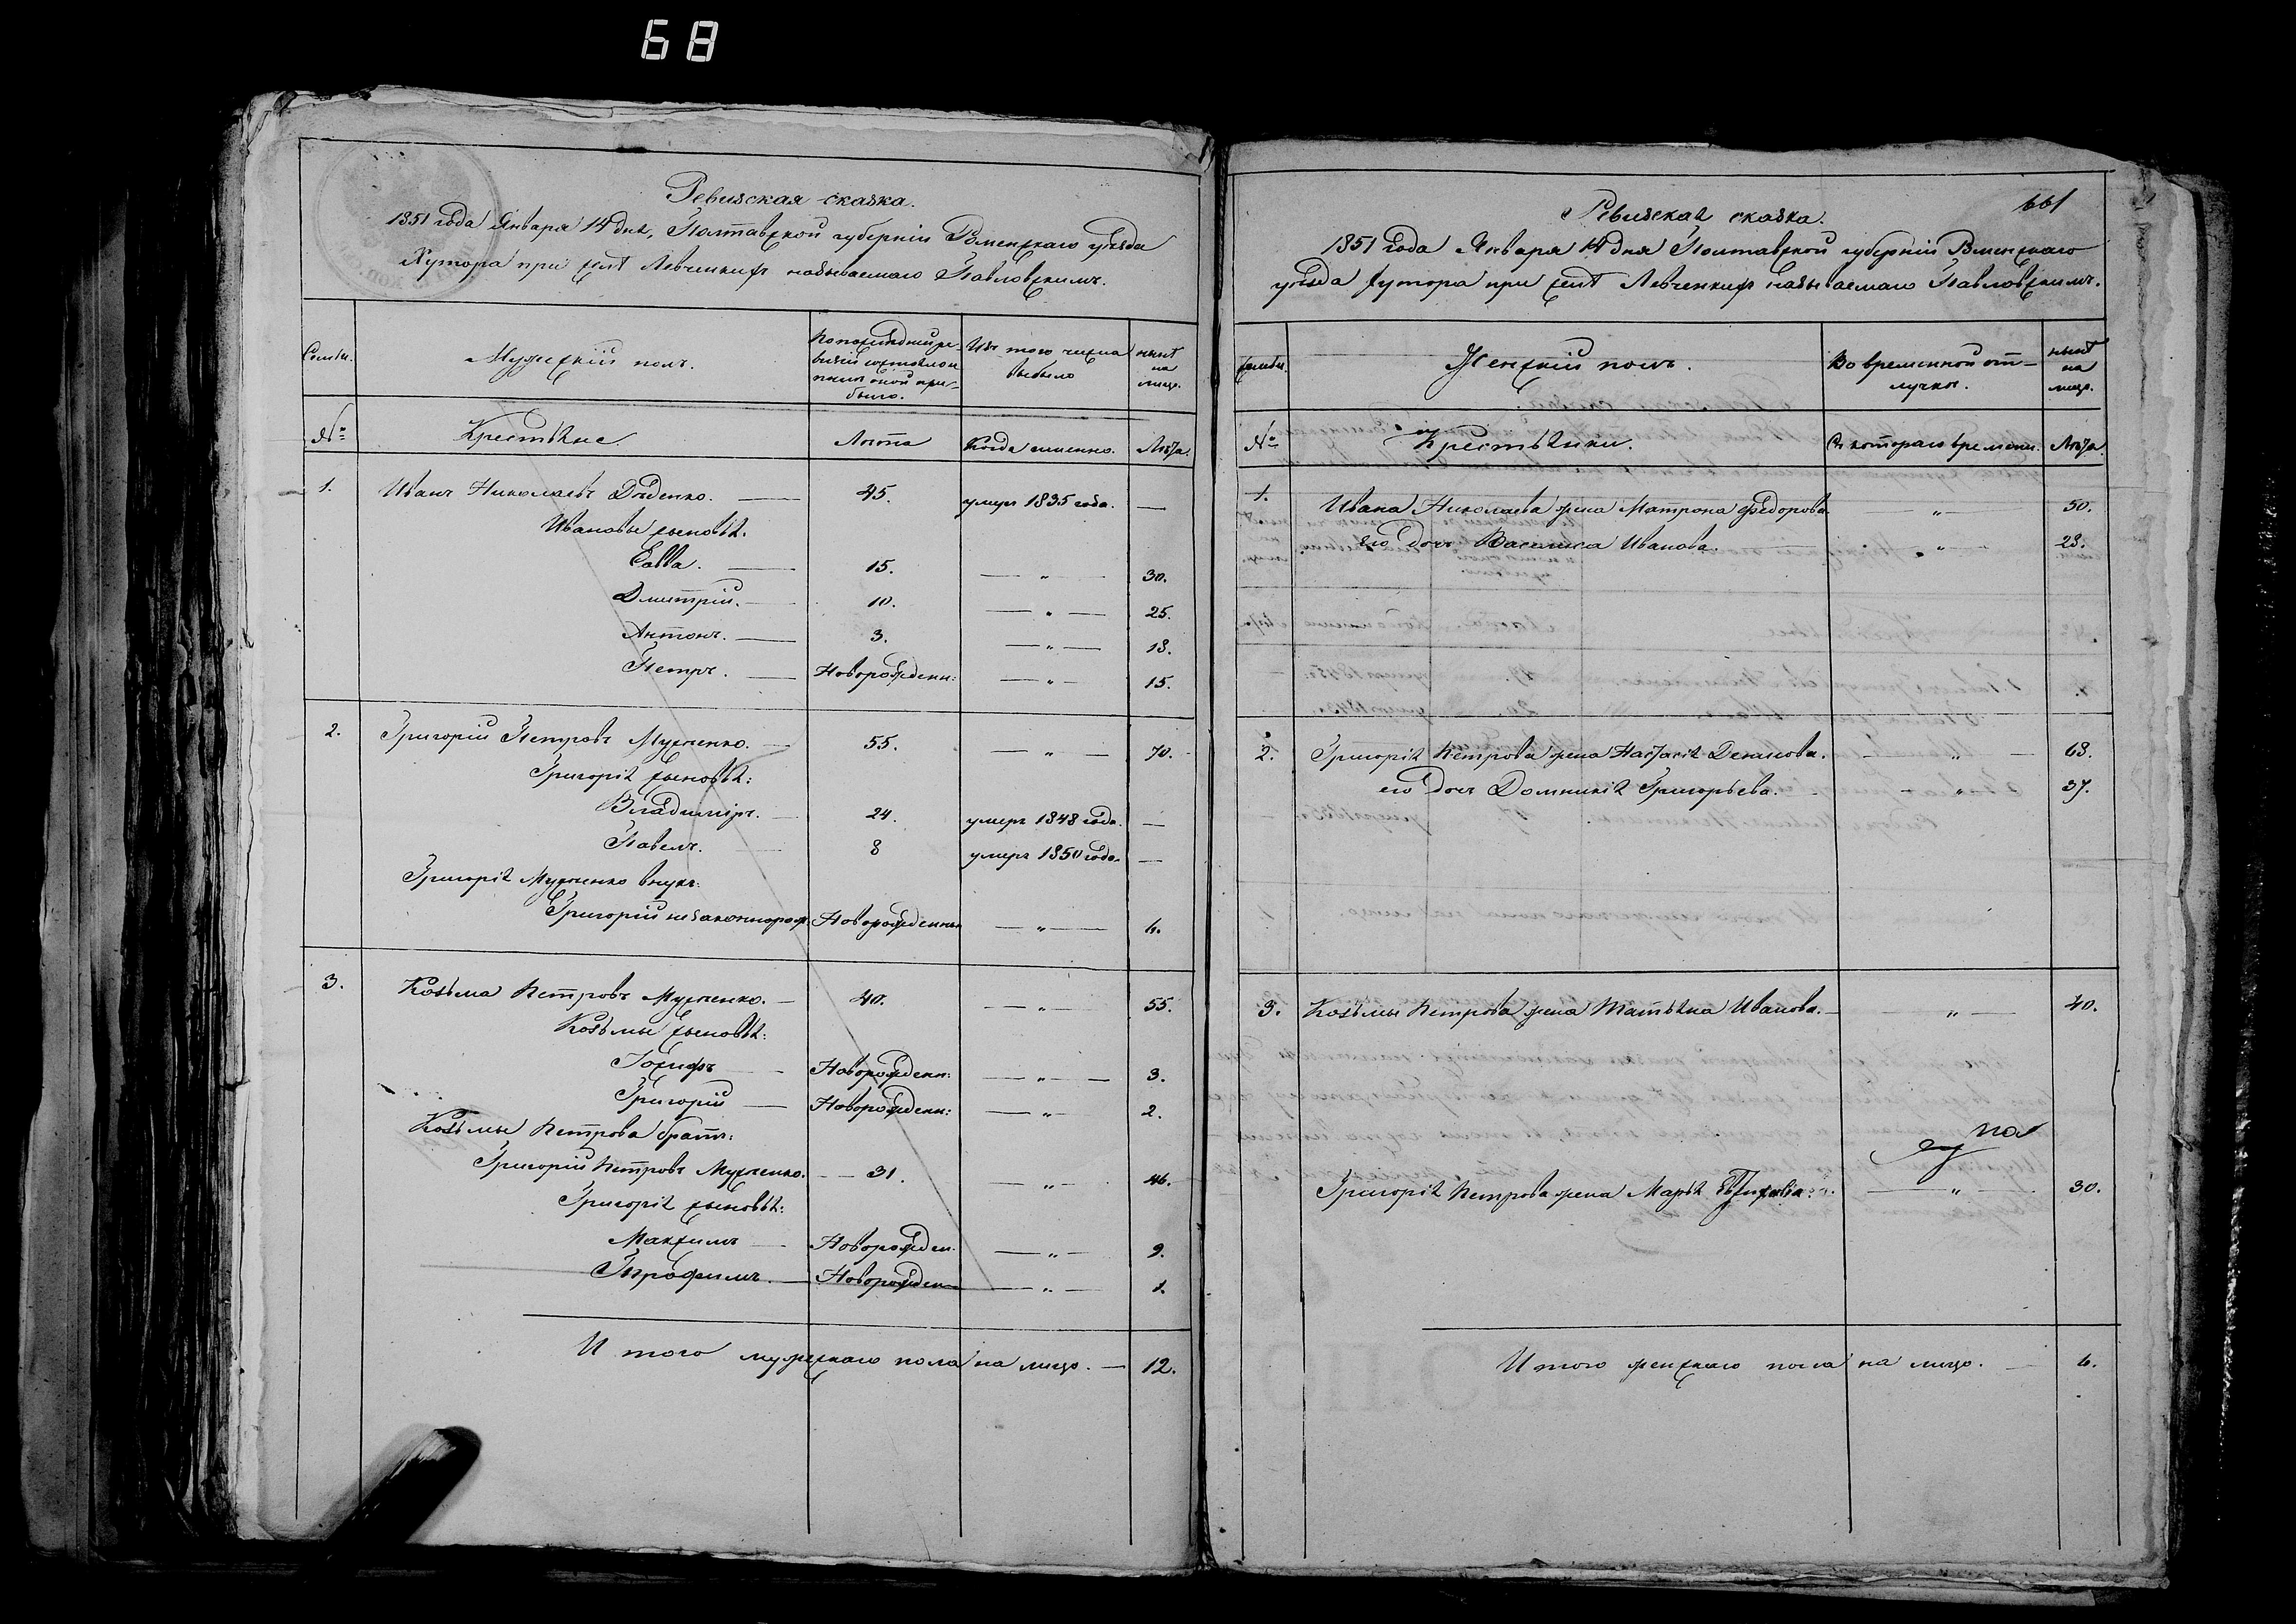 68
Ревизская сказка.
1851 года Января 14 дня, Полтавской губернии Роменскаго уѣзда
Хутора при селѣ Левченкихъ называемаго Павловскимъ.
Семьи.
Мужескій полъ.
По послѣдней ре-
визіи состояло и
послѣ оной при-
было.
Изъ того числа
выбыло
нынѣ
на
лицо.
№
Крестьяне.
Лѣта
Когда именно.
Лѣта.
1. Иванъ Николаевъ Дѣденко. — 45. умеръ 1835 года. —
Ивановы сыновья:
Савва. — 15. — " — 30.
Дмитрій. — 10. — " — 25.
Антонъ. — 3. — " — 18.
Петръ. — Новорожденн: — " — 15.
2. Григорій Петровъ Мусіенко. — 55. — " — 70.
Григорія сыновья:
Владиміръ. — 24. умеръ 1848 года. —
Павелъ. — 8 умеръ 1850 года. —
Григорія Мусіенко внукъ:
Григорій незаконнорож. Новорожденный — " — 6.
3. Козьма Петровъ Мусіенко. — 40. — " — 55.
Козьмы сыновья:
Іосифъ — Новорожденн: — " — 3.
Григорій — Новорожденн: — " — 2.
Козьмы Петрова братъ:
Григорій Петровъ Мусіенко. — 31. — " — 46.
Григорія сыновья:
Максимъ — Новорожден. — " — 9.
Трофимъ. — Новорожден — " — 1.
Итого мужескаго пола на лицо. — 12.
661
Ревизская сказка.
1851 года Января 14 дня Полтавской губерніи Роменскаго
уѣзда хутора при селѣ Левченкихъ называемаго Павловскимъ.
семьи.
Женскій полъ.
Во временной от-
лучкѣ.
нынѣ
на
лицо.
№
Крестьянки.
Съ котораго времени.
Лѣта.
1. Ивана Николаева жена Матрона Федорова — " — 50.
его дочь Василиса Иванова. — " — 28.
2. Григорія Петрова жена Настасія Демянова. — " — 68.
его дочь Домникія Григорьева. — " — 37.
3. Козьмы Петрова жена Татьяна Иванова. — " — 40.
Григорія Петрова жена Марья — " — 30.
Итого женскаго пола на лицо. — 6.